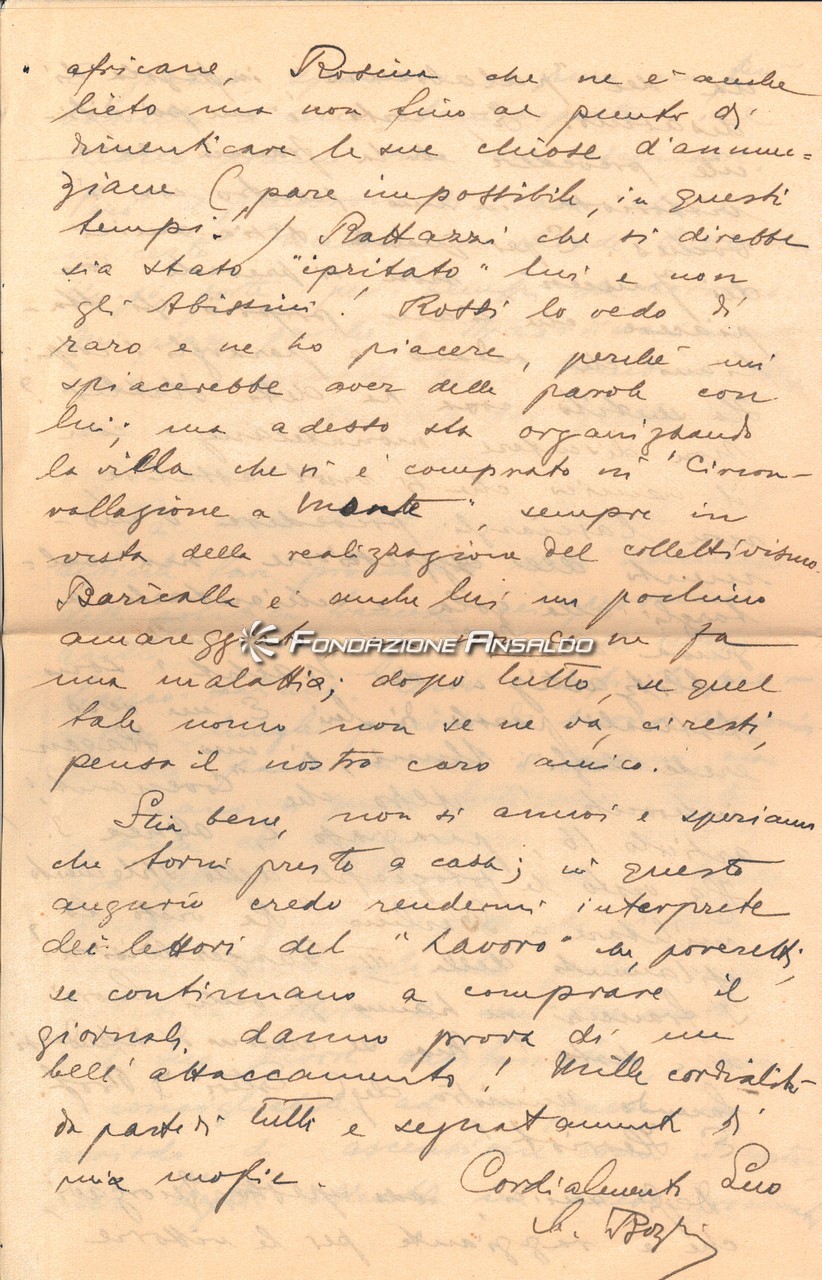 africane, Rosina che ne è anche
lieto ma non fino al punto di
dimenticare le sue chiose d'annun=
ziane (pare impossibile, in questi
tempi!) Rattazzi che si direbbe
sia stato "ipritato" lui e non
gli Abissini! Rossi lo vedo di
raro e ne ho piacere, perché mi
spiacerebbe aver delle parole con
lui; ma adesso sta organizzando
la villa che si è comprato in "Circon-
vallazione a Monte", sempre in
vista della realizzazione del collettivismo.
Baricalla è anche lui un pochino
amareggiato ma non se ne fa
FONDAZIONE ANSALDO
una malattia; dopo tutto, se quel
tale nonno non se ne va, ci resti,
pensa il nostro caro amico.
Stia bene, non si annoi e speriamo
che torni presto a casa; in questo
augurio credo rendermi interprete
dei lettori del "Lavoro" che, poveretti,
se continuano a comprare il
giornale, danno prova di un
bell'attaccamento! Mille cordialità
da parte di tutti e segnatamente di
mia moglie.
Cordialmente Suo